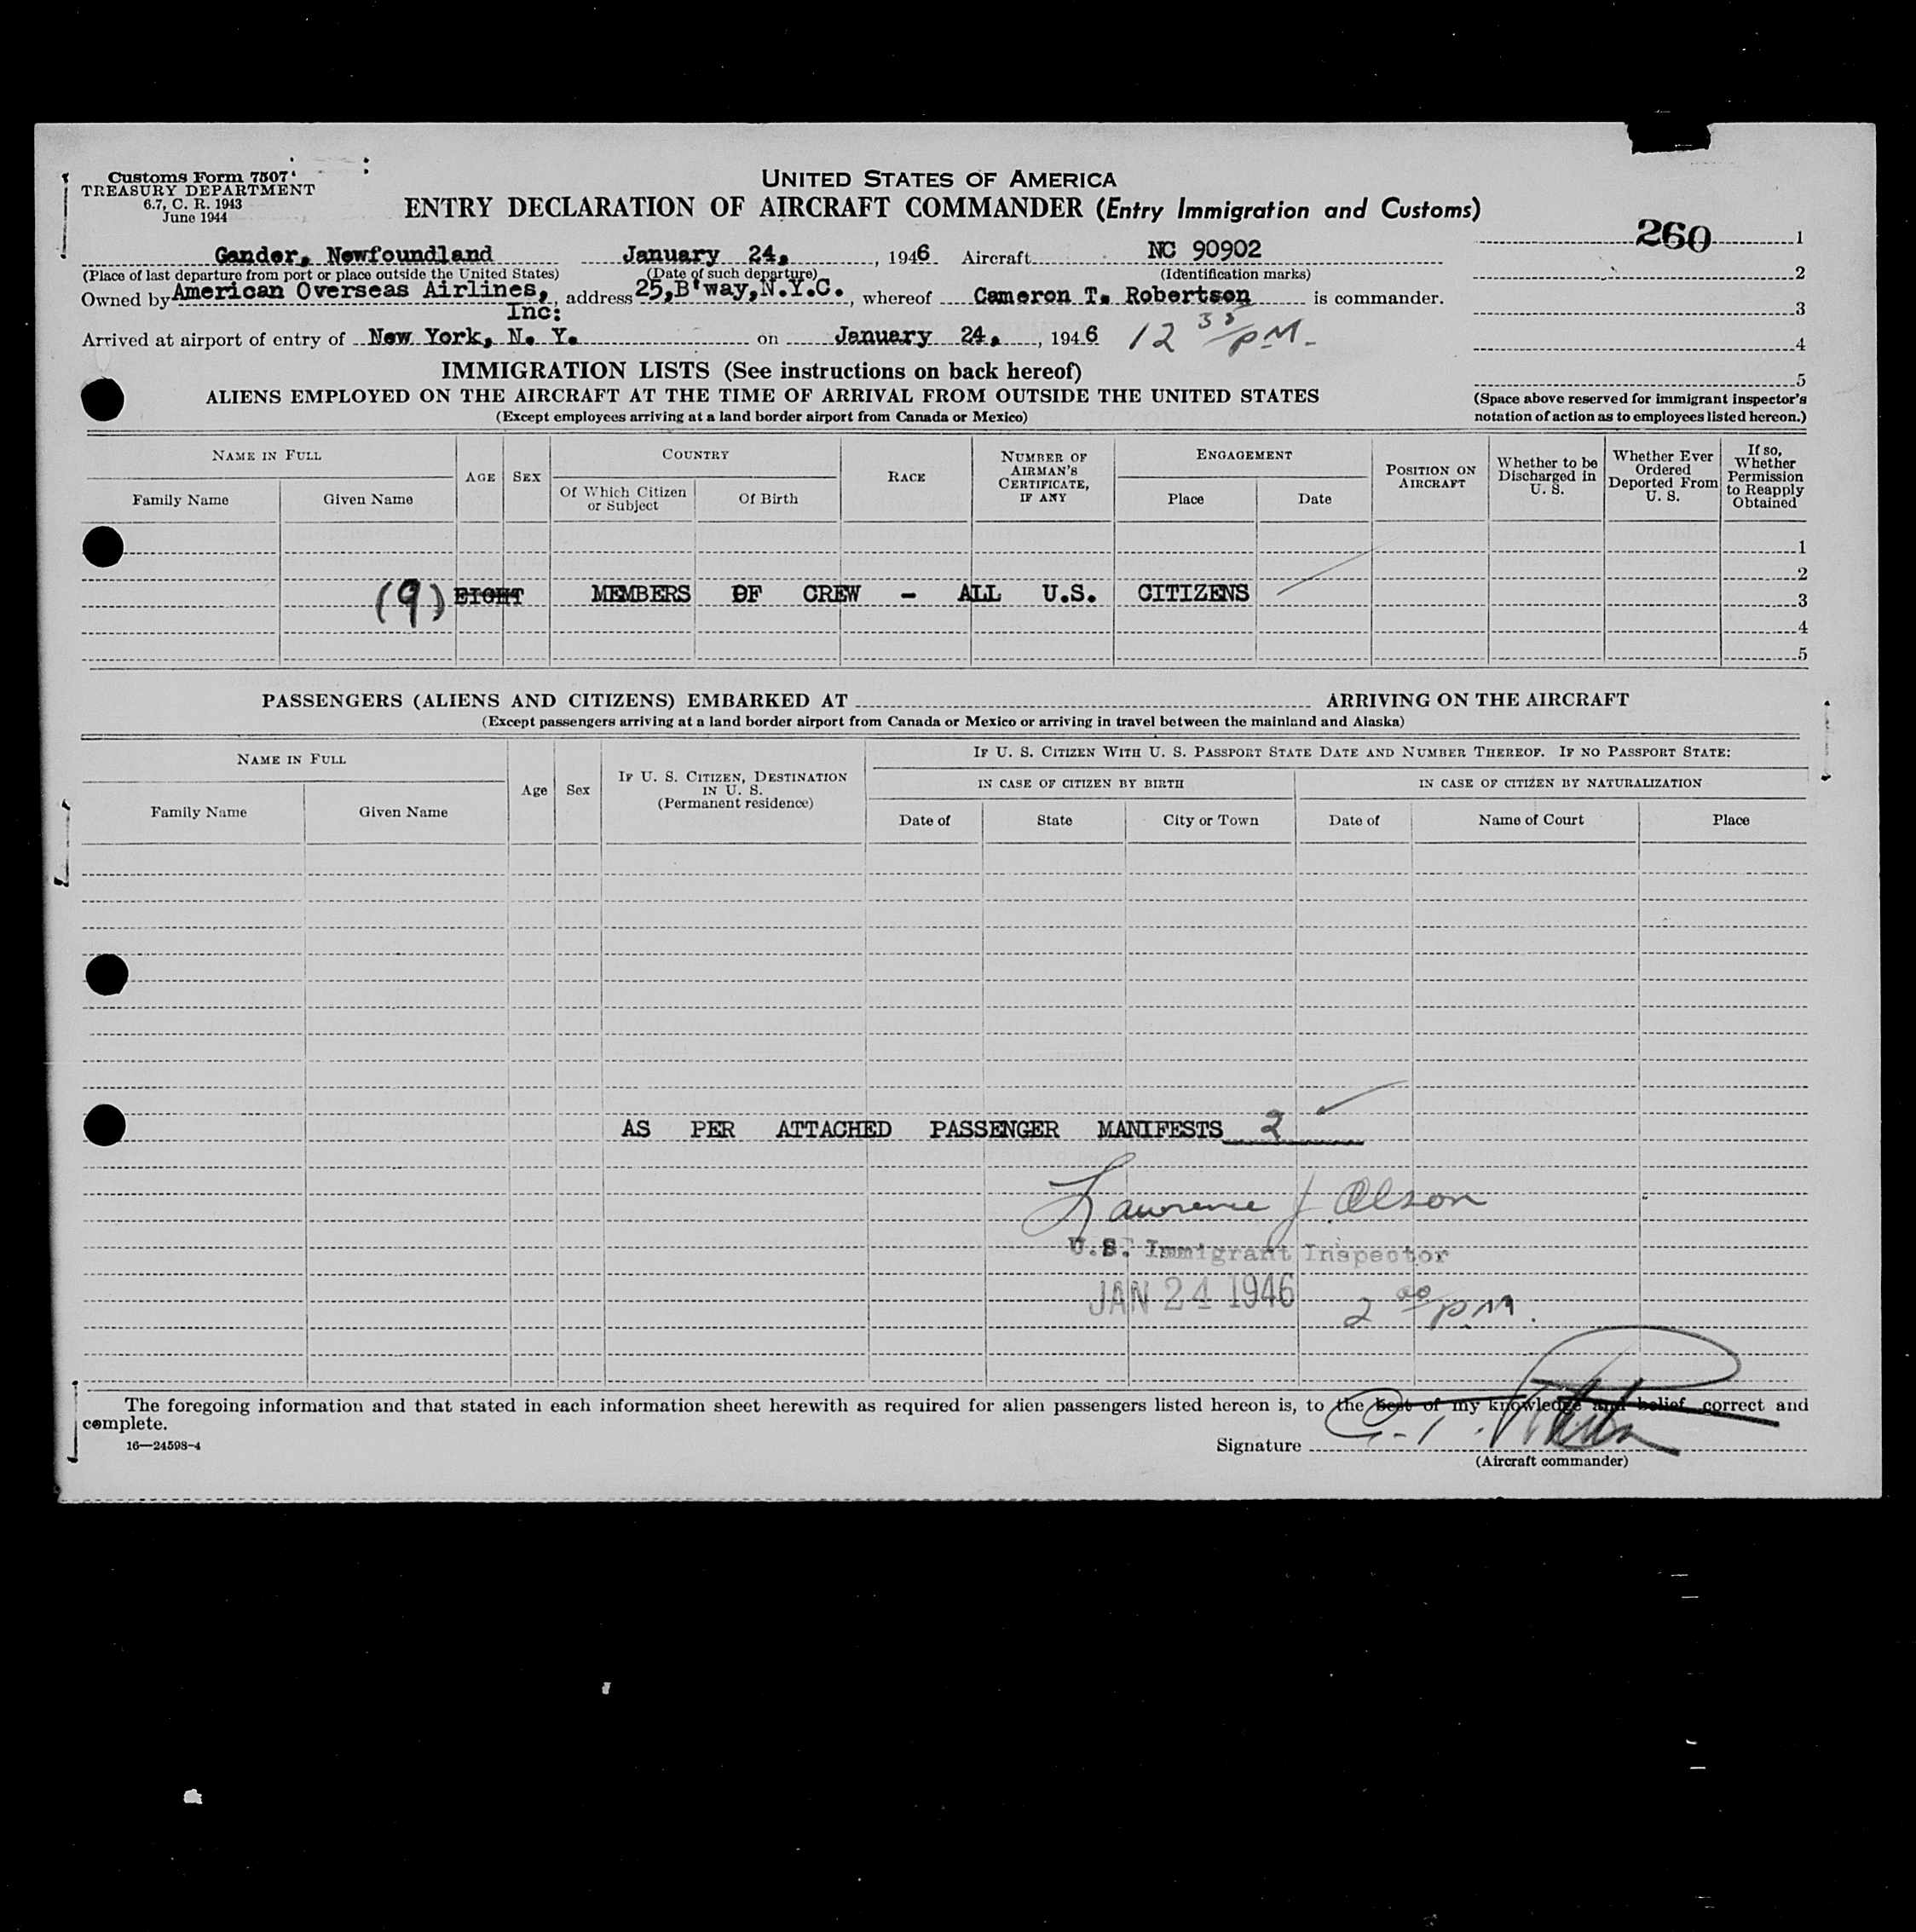 Customs Form 7507
TREASURY DEPARTMENT
6.7, C. R. 1943
June 1944
UNITED STATES OF AMERICA
ENTRY DECLARATION OF AIRCRAFT COMMANDER (Entry Immigration and Customs)
260 1
Gander, Newfoundland January 24, , 1946 Aircraft NC 90902
(Place of last departure from port or place outside the United States) (Date of such departure) (Identification marks) 2
Owned by American Overseas Airlines, Inc: , address 25,B'way,N.Y.C. , whereof Cameron T. Robertson is commander.
3
Arrived at airport of entry of New York, N. Y. on January 24, , 1946 12 35/PM-
4
IMMIGRATION LISTS (See instructions on back hereof)
5
ALIENS EMPLOYED ON THE AIRCRAFT AT THE TIME OF ARRIVAL FROM OUTSIDE THE UNITED STATES
(Except employees arriving at a land border airport from Canada or Mexico)
(Space above reserved for immigrant inspector's
notation of action as to employees listed hereon.)
NAME IN FULL
Family Name Given Name
AGE SEX
COUNTRY
Of Which Citizen or Subject Of Birth
RACE
NUMBER OF AIRMAN'S CERTIFICATE, IF ANY
ENGAGEMENT
Place Date
POSITION ON AIRCRAFT
Whether to be Discharged in U. S.
Whether Ever Ordered Deported From U. S.
If so, Whether Permission to Reapply Obtained
1
2
(9) EIGHT MEMBERS OF CREW - ALL U.S. CITIZENS 3
4
5
PASSENGERS (ALIENS AND CITIZENS) EMBARKED AT ARRIVING ON THE AIRCRAFT
(Except passengers arriving at a land border airport from Canada or Mexico or arriving in travel between the mainland and Alaska)
NAME IN FULL
Family Name Given Name
Age Sex
IF U. S. CITIZEN, DESTINATION IN U. S. (Permanent residence)
IF U. S. CITIZEN WITH U. S. PASSPORT STATE DATE AND NUMBER THEREOF. IF NO PASSPORT STATE:
IN CASE OF CITIZEN BY BIRTH IN CASE OF CITIZEN BY NATURALIZATION
Date of State City or Town Date of Name of Court Place
AS PER ATTACHED PASSENGER MANIFESTS 2
Lawrence J Olson
U.S. Immigrant Inspector
JAN 24 1946 2 00/PM.
The foregoing information and that stated in each information sheet herewith as required for alien passengers listed hereon is, to the best of my knowledge and belief correct and
complete.
16—24598-4
Signature C. T.
(Aircraft commander)